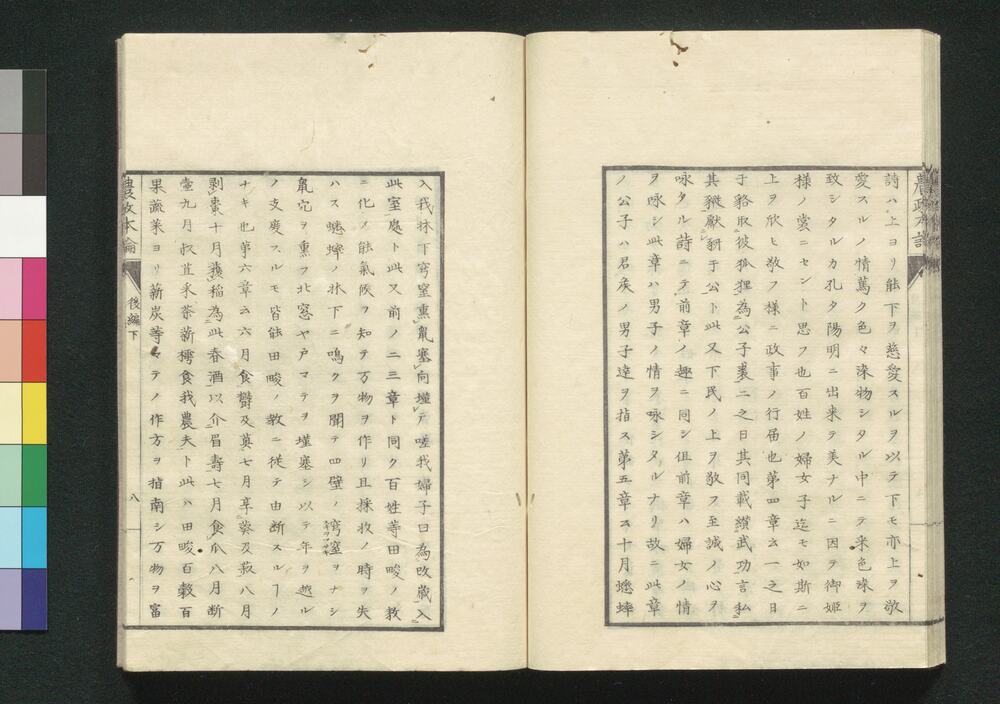 詩ハ上ヨリ能下ヲ慈愛スルヲ以テ下モ亦上ヲ敬
愛スルノ情篤ク色々染物シタル中ニテ采色染ヲ
致シタルカ孔タ陽明ニ出来テ美ナルニ因テ御姫
様ノ裳ニセント思フ也百姓ノ婦女子迄モ如斯ニ
上ヲ欣ヒ敬フ様ニ政事ノ行届也第四章云一之日
于貉取彼狐狸為公子裘二之日其同載纉武功言私
其豵献豜于公ト此又下民ノ上ヲ敬フ至誠ノ心ヲ
咏タル詩ニテ前章ノ趣ニ同シ但前章ハ婦女ノ情
ヲ咏シ此章ハ男子ノ情ヲ咏シタルナリ故ニ此章
ノ公子ハ君矦ノ男子達ヲ指ス第五章云十月蟋蟀
入我牀下穹窒熏鼠塞向墐戸嗟我婦子曰為改歳入
此室處ト此又前ノ二三章ト同ク百姓等田畯ノ教
ニ化ノ能氣候ヲ知テ万物ヲ作リ且採收ノ時ヲ失
ハス蟋蟀ノ牀下ニ鳴クヲ聞テ四壁ノ穹窒ヲナシ
鼠穴ヲ熏フ北窓ヤ戸マテヲ墐塞シ以テ年ヲ越ル
ノ支度スルモ皆能田畯ノ教ニ従テ由断スルヿノ
ナキ也第六章云六月食鬱及薁七月享葵及菽八月
剥棗十月穫稲為此春酒以介眉壽七月食瓜八月断
壷九月叔苴采荼薪樗食我農夫ト此ハ田畯百穀百
果蔬菜ヨリ薪炭等マテノ作方ヲ指南シ万物ヲ富
農政本論
後編下
八